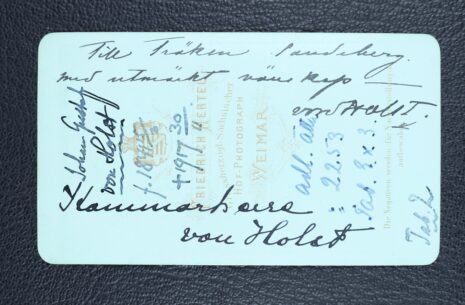 Till Fröken Sandeberg.
med utmärkt vänskap
von Holst.
Kammarherre
von Holst
Johan Gustaf
von Holst
† 1917 30/4
FRIEDRICH HERTEL
Grossherzogl. Sächsischer
HOF-PHOTOGRAPH
WEIMAR
adl. ätt
: 2253
Tab. 2 x 3
Tab. 2
Die Negative werden für
aufbewahrt.